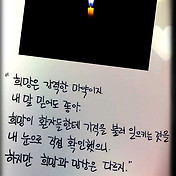 "희망은 강력한 마약이지
내 말 믿어도 좋아.
희망이 환자들한테 기적을 불러 일으키는 것을
내 눈으로 직접 확인했으니.
하지만 희망과 망상은 다르지."